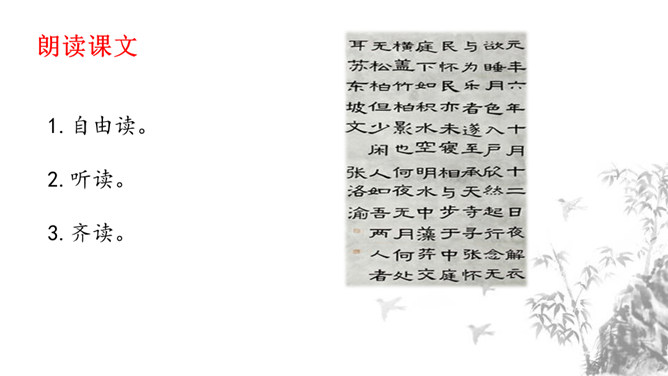 朗读课文
1.自由读。
2.听读。
3.齐读。
元丰六年十月十二日夜解衣
欲睡月色入户欣然起行念无
与为乐者遂至承天寺寻张怀
民怀民亦未寝相与步于中庭
庭下如积水空明水中藻荇交
横盖竹柏影也何夜无月何处
无松柏但少闲人如吾两人者
耳苏东坡文 张洛渝